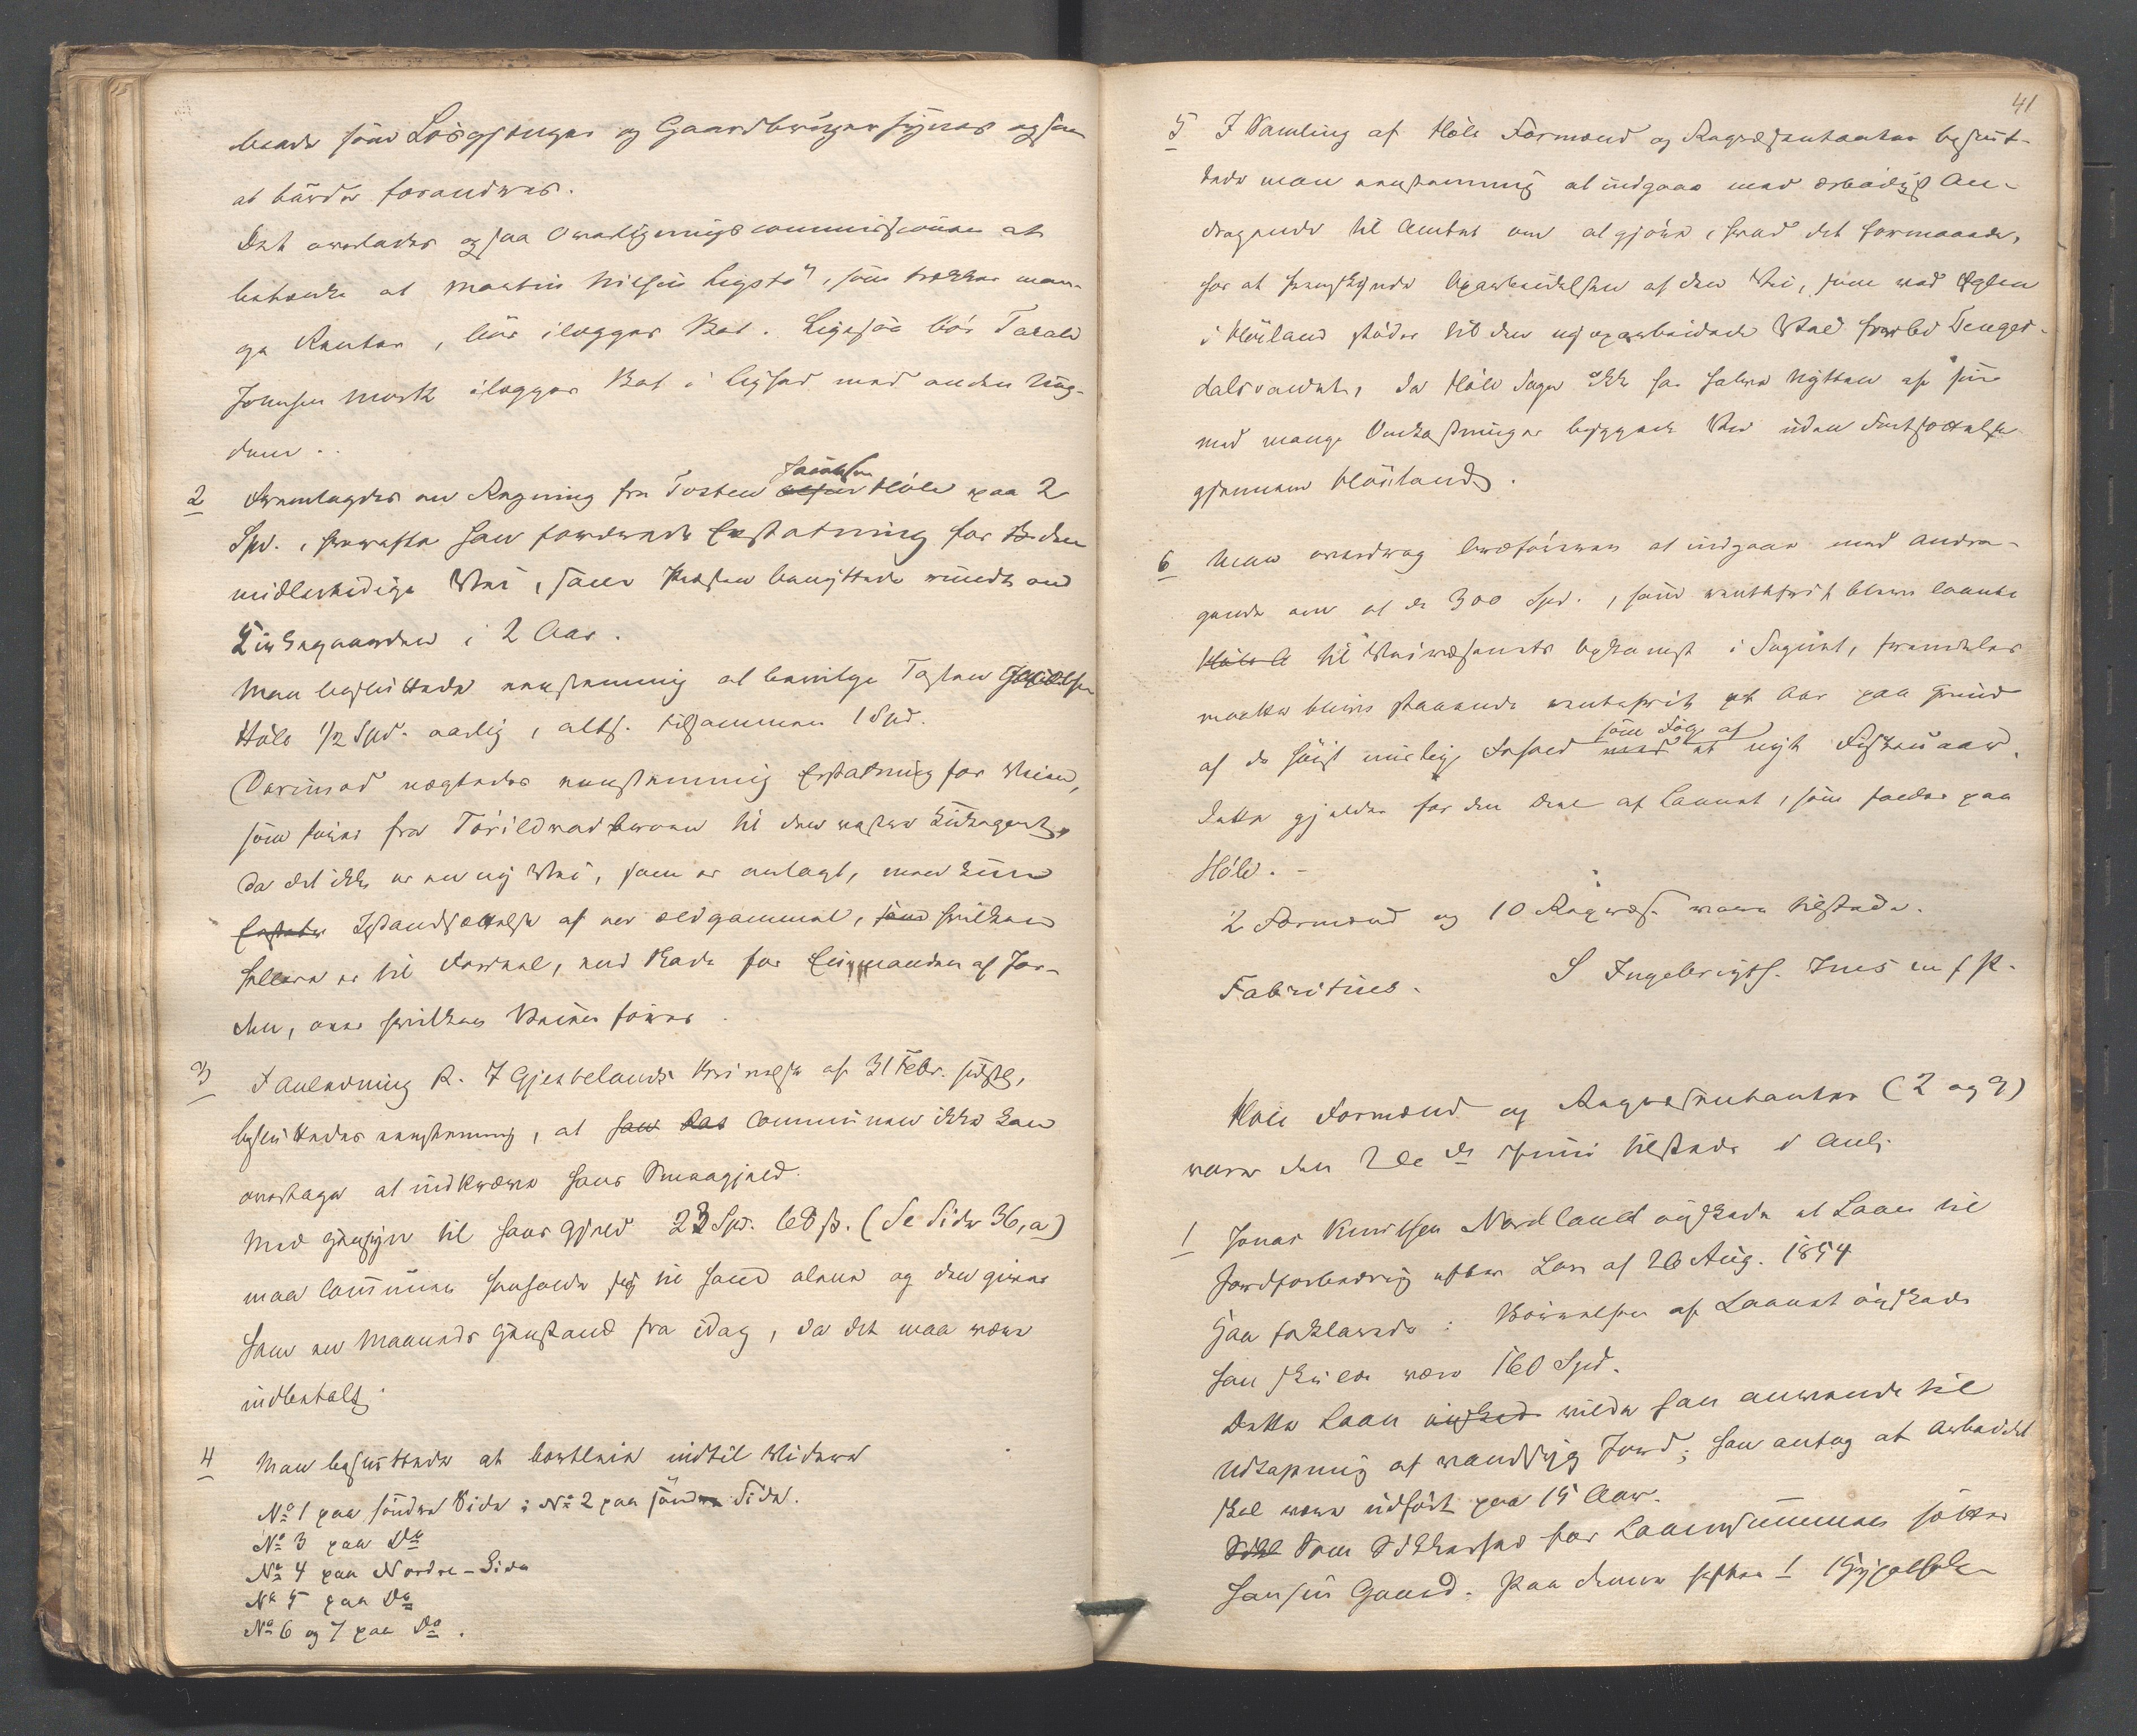 beede som Løsgjenger og Gaardbrugersynes ogsaa
at burde forandres.
Det overlades ogsaa Overligningscommissionen at
betænke at Martin Nilsen Ligstø", som trækker man-
ge Renter, bør ilægges Skat. Ligesaa bør Tarald
Johnsen Mork ilægges Skat i Lighed med anden Ung-
dom.
2 Fremlagdes en Regning fra Tosten Jacobsen Høle paa 2
Spd., hvorefter han fordrede Erstatning for den
midlertidige Vei, som Præsten benyttede rundt om
Kirkegaarden i 2 Aar.
Man besluttede eenstemmig at bevilge Tosten
Høle 1/2 Spd. aarlig, altsaa tilsammen 1 Spd.
Derimod nægtedes eenstemmig Erstatning for Veien,
som fører fra til den vestre Kirkeport,
da det ikke er en ny Vei, som er anlagt, men kun
Erstatn Istandsættelse af en ældgammel, som hvilken
hellere er til Fordeel, end Skade for Eiermanden af Jor-
den, over hvilken Veien føres.
3 I Anledning R. T Gjesbelands Skrivelse af 31 Febr. sidstl.,
besluttedes eenstemmig, at han det Communen ikke kan
overtage at indkræve hans Smaagjæld.
Med Hensyn til hans Gjæld 23 Spd. 68 s. (Se Side 36,a)
maa Communen henholde sig til ham alene og den giver
ham en Maaneds Henstand fra idag, da det maa være
indbetalt.
4 Man besluttede at bortleie indtil Videre
No 1 paa søndre Side; No 2 paa søndre Side.
No 3 paa Do
No 4 paa Nordre-Side
No 5 paa Do
No 6 og 7 paa Do.
41
5 I Samling af Høle Formænd og Repræsentanter beslut-
tede man eenstemmig at indgaae med ærbødigst An-
dragende til Amtet om at gjøre, hvad det formaaede,
for at fremskynde Oparbeidelsen af den Vei, som ved
i Høiland støder til den nyoparbeidede Vei forbi Senger-
dalsvandet, da Høle Sogn ikke har halve Nytten af sin
med mange Omkostninger byggede Vei uden Fortsættelse
gjennem Høiland.
6 Man overdrog Ordføreren at indgaae med Andra-
gende om at de 300 Spd., som rentefrit bleve laante
Høle A til Veivæsenets bekomst i Sognet, fremdeles
maatte blive staaende rentefrit et Aar paa Grund
af de høist mislige Forhold med som Følge af et nyt Fiskeuaar.
Dette gjælder for den Deel af Laanet, som falder paa
Høle. -
2 Formænd og 10 Repræs. vare tilstede.
Fabritius. S Ingebrigts. Ims m f P.
Høle Formænd og Repræsentanter (2 og 9)
vare den 2de Juni tilstede i Anl.
1 Jonas Knudsen Nordland ønskede et Laan til
Jordforbedring efter Lov af 26 Aug. 1854
Han forklarede: Størrelsen af Laanet ønskede
han skulde være 160 Spd.
Dette Laan ønsked vilde han anvende til
Udtapning af vandsyg Jord; han antog at Arbeidet
skal være udført paa 15 Aar.
Sikk Som Sikkerhed for Laanesummen sætter
han sin Gaard. Paa denne hefter 1